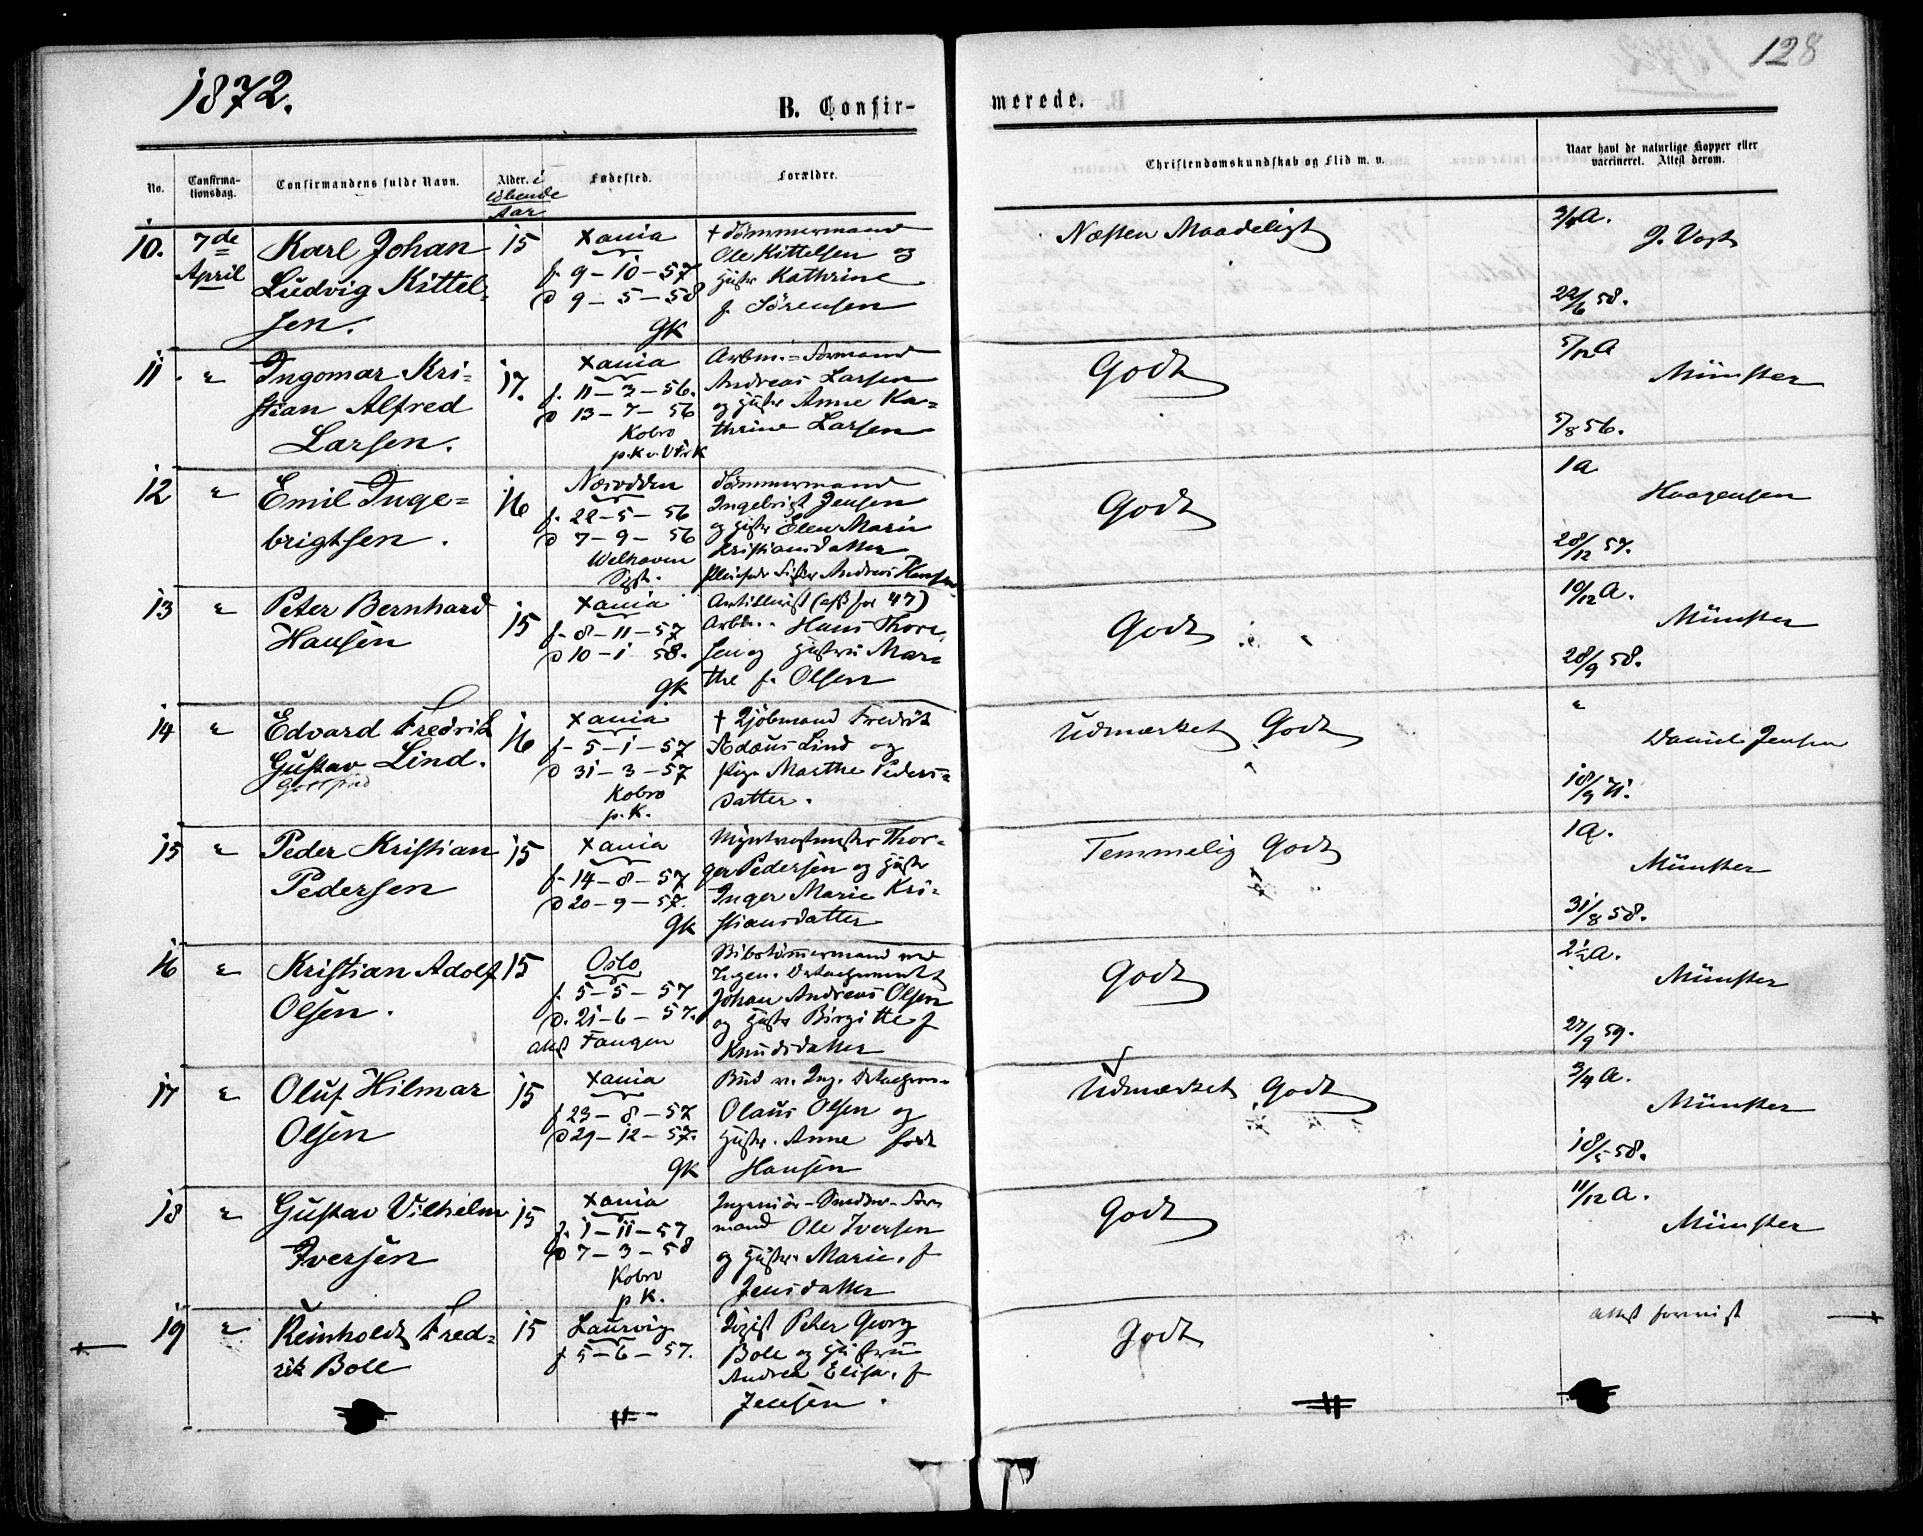 128
1872.
B. Confir-
merede.
No.
Confirma-
tionsdag.
Confirmandens fulde Navn.
Alder. i
løbende
Aar
Fødested.
Forældre.
Christendomskundskab og Flid m. v.
Naar havt de naturlige Kopper eller
vaccineret. Attest derom.
10.
7de
April
Karl Johan
Ludvig Kittel-
sen.
15
Xania
f. 9-10-57
d 9-5-58
GK
† Tømmermand
Ole Kittelsen og
Hustr Kathrine
f. Sörensen
Næsten Maadeligt
3/4 A.
J. Vogt
22/6 58.
11
"
Ingomar Kri-
stian Alfred
Larsen.
17.
Xania
f. 11-2-56.
d 13-7-56
Kobro
Arbm.-Formand
Andreas Larsen
og Hustr Anne Ka-
thrine Larsen
Godt
5/12 A
Münster
5/8 56.
12
"
Emil Inge-
brigtsen.
16
Næsodden
f. 22-5-56
d 7-9-56
Welhaven
Tømmermand
Ingebrigt Jensen
og Hustr Elen Marie
Kristiansdatter
Andreas Hansen
Godt
1 a
Haagensen
28/12 57.
13
"
Peter Bernhard
Hansen
15
Xania
f. 8-11-57
d 10-1-58.
GK
Artillerist
Arbm. Hans Thore
sen og Hustru Mar-
the f. Olsen
Godt
10/12 A.
Münster
28/9 58.
14
"
Edvard Fredrik
Gustav Lind.
Gottfried
16
Xania
f. 5-1-57
d 31-3-57
Kobro
p. K.
† Kjøbmand Fredrik
Lind og
Pige Marthe Peders-
datter.
Udmærket Godt
"
Daniel Jensen
18/9 71.
15
"
Peder Kristian
Pedersen
15
Xania
f. 14-8-57
d 20-9-57.
GK
Thor-
ger Pedersen og Hustr
Inger Marie Kri-
stiansdatter
Temmelig Godt
1 A.
Münster
31/8 58.
16
"
Kristian Adolf
Olsen.
15
Oslo
f. 5-5-57
d. 21-6-57.
att Fangen
ved
Ingen. Detachementet
Johan Andreas Olsen
og Hustr Birgitte f
Knudsdatter
Godt
2½ A.
Münster
27/9 59.
17
"
Oluf Hilmar
Olsen
15
Xania
f 23-8-57
d 29-12-57.
GK
Bud v. Ing. Detachem-
Olaus Olsen og
Hustr. Anne født
Hansen
Udmærket Godt
3/4 A.
Münster
18/5 58.
18
"
Gustav Vilhelm
Iversen
15
Xania
f. 1-11-57
d 7-3-58
Kobro
p K.
Ingeniör-Smeder-For
mand Ole Iversen
og Hustr. Marie f
Jensdatter
Godt
11/12 A.
Münster
19
"
Reinholdt Fred-
rik Boll
15
Laurvig
f 5-6-57.
Peter Georg
Boll og Hustru
Andrea Elisa. f
Jensen.
Godt
Attest forevist